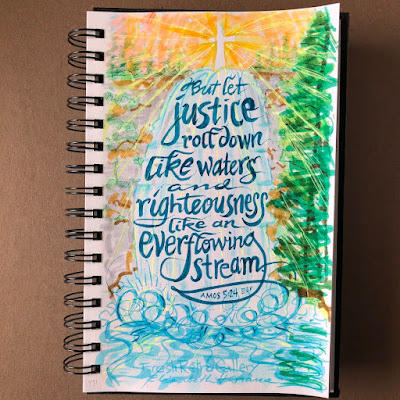 But let
justice
roll down
like waters
and
righteousness
like an
everflowing
stream
AMOS 5:24, ESV